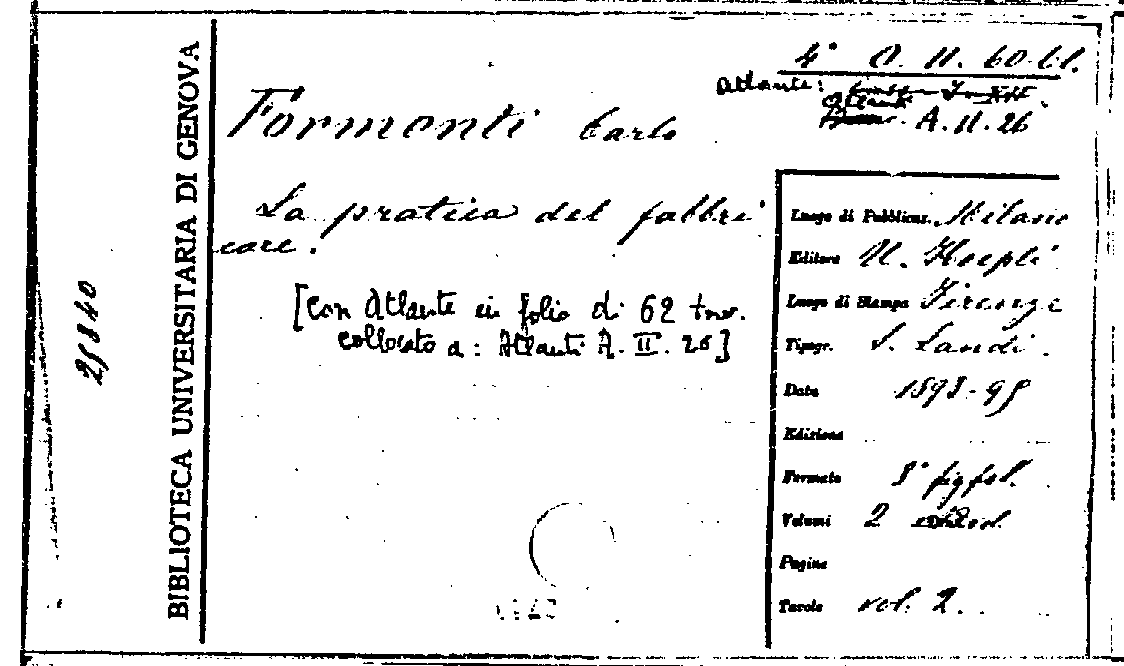 4° A. II. 60-61.
Atlante:
Atlanti
A. II. 26
Formenti Carlo
La pratica del fabbri
care.
[con Atlante in folio di 62 tav.
collocato a: Atlanti A. II. 26]
BIBLIOTECA UNIVERSITARIA DI GENOVA
25840
Luogo di Pubblicaz. Milano
Editore U. Hoepli
Luogo di Stampa Firenze
Tipogr. S. Landi.
Data 1893-95
Edizione
Formato 8° fig fol.
Volumi 2
Pagine
Tavole vol. 2.